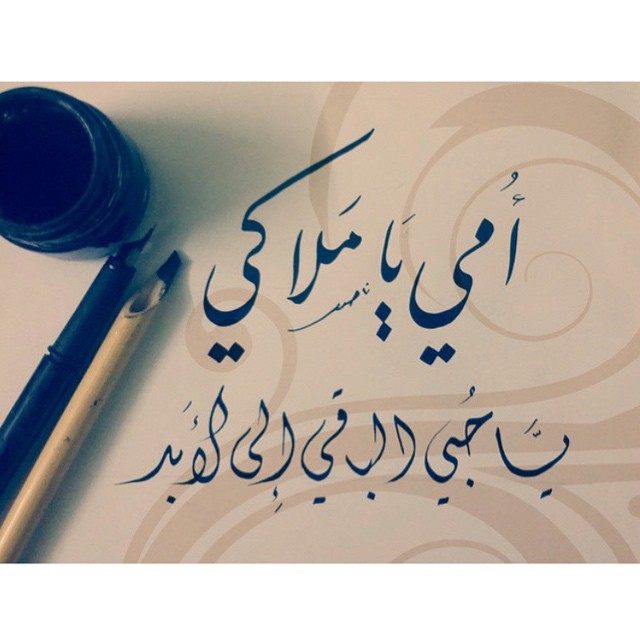 أُمي يَا مَلاكي
يَّا حُبي الباقي إلى الأبَد